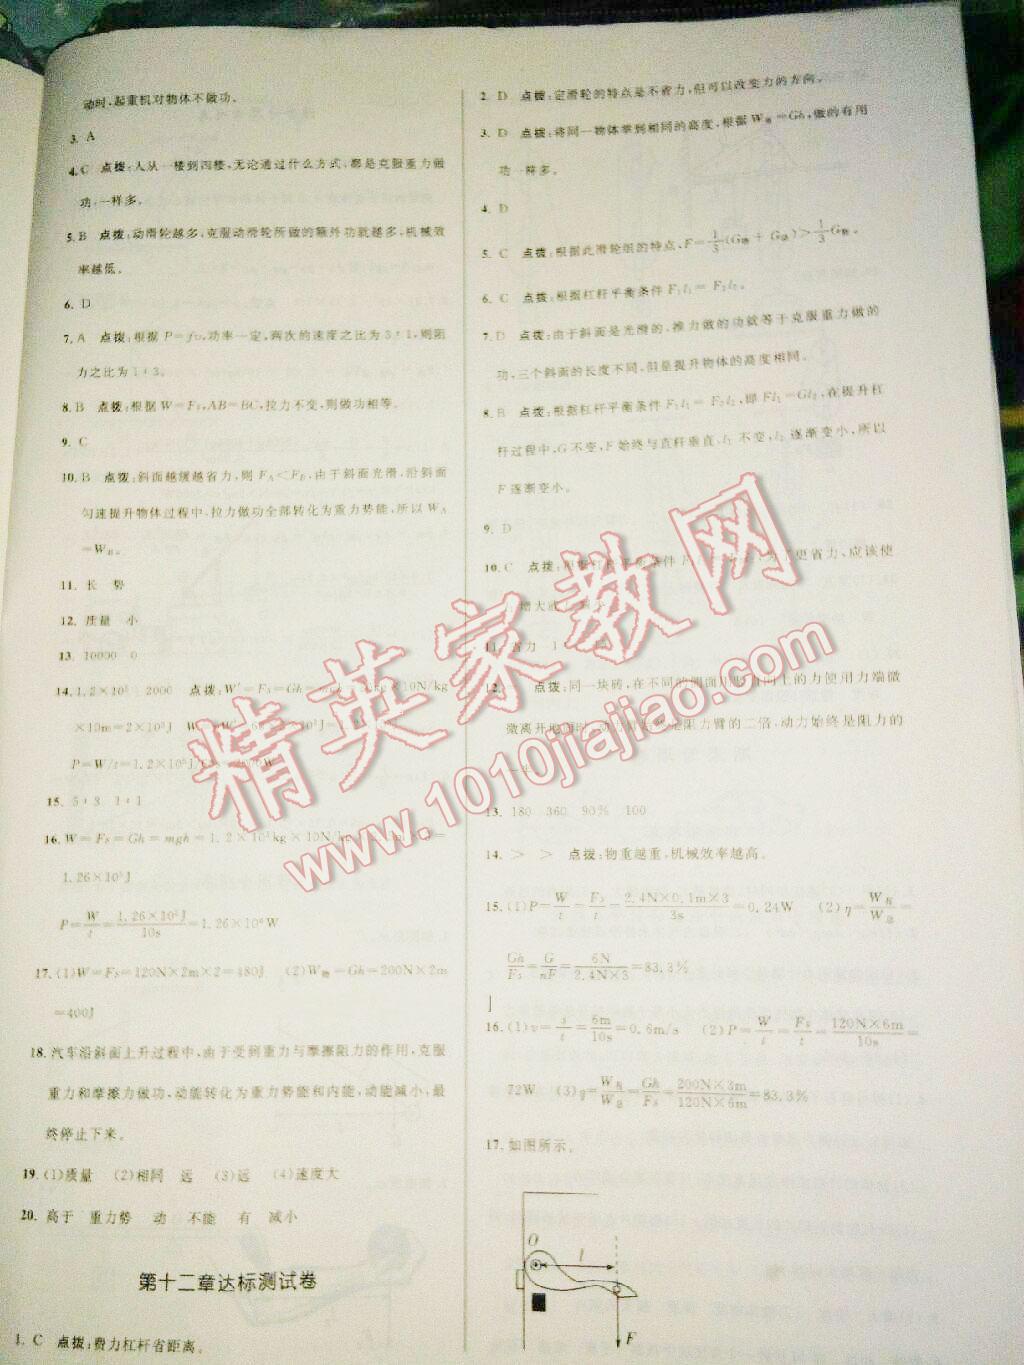 动时,起重机对物体不做功。
3. A
4. C 点拨:人从一楼到四楼,无论通过什么方式,都是克服重力做
功,一样多。
5. B 点拨:动滑轮越多,克服动滑轮所做的额外功就越多,机械效
率越低。
6. D
7. A 点拨:根据 P=fv,功率一定,两次的速度之比为 3:1,则阻
力之比为 1:3。
8. B 点拨:根据 W=Fs,AB=BC,拉力不变,则做功相等。
9. C
10. B 点拨:斜面越缓越省力,则 F_A<F_B,由于斜面光滑,沿斜面
匀速提升物体过程中,拉力做功全部转化为重力势能,所以 W_A
=W_B。
11. 长 势
12. 质量 小
13. 10000 0
14. 1.2×10⁵ 2000 点拨:W′=Fs=Gh=mgh=
×10m=2×10³J
P=W/t=1.2×10⁵J/
15. 5:3 1:1
16. W=Fs=Gh=mgh=1.2×10⁵kg×10N/kg
1.26×10⁷J
P=W/t=1.26×10⁷J/10s=1.26×10⁶W
17. (1)W=Fs=120N×2m×2=480J (2)W有=Gh=200N×2m
=400J
18. 汽车沿斜面上升过程中,由于受到重力与摩擦阻力的作用,克服
重力和摩擦力做功,动能转化为重力势能和内能,动能减小,最
终停止下来。
19. (1)质量 (2)相同 远 (3)远 (4)速度大
20. 高于 重力势 动 不能 有 减小
第十二章达标测试卷
1. C 点拨:费力杠杆省距离。
2. D 点拨:定滑轮的特点是不省力,但可以改变力的方向。
3. D 点拨:将同一物体举到相同的高度,根据 W有=Gh,做的有用
功一样多。
4. D
5. C 点拨:根据此滑轮组的特点,F=1/3(G物+G动)>1/3G物。
6. C 点拨:根据杠杆平衡条件 F₁l₁=F₂l₂。
7. D 点拨:由于斜面是光滑的,推力做的功就等于克服重力做的
功,三个斜面的长度不同,但是提升物体的高度相同。
8. B 点拨:根据杠杆平衡条件 F₁l₁=F₂l₂,即 Fl₁=Gl₂,在提升杠
杆过程中,G 不变,F 始终与直杆垂直,l₁ 不变,l₂ 逐渐变小,所以
F 逐渐变小。
9. D
10. C 点拨:根据杠杆平衡条件 为了更省力,应该使
增大或
11. 省力
12. 点拨:同一块砖,在不同的侧面用 向上的力使力端微
微离开地面时,动力臂始终是阻力臂的二倍,动力始终是阻力的
一半
13. 180 360 90% 100
14. > > 点拨:物重越重,机械效率越高。
15. (1)P=W/t=Fs/t=2.4N×0.1m×3/3s=0.24W (2)η=W有/W总=
Gh/Fs=G/nF=6N/2.4N×3=83.3%
16. (1)v=s/t=6m/10s=0.6m/s (2)P=W/t=Fs/t=120N×6m/10s=
72W (3)η=W有/W总=Gh/Fs=200N×3m/120N×6m=83.3%
17. 如图所示。
O
l
F
精英家教网
www.1010jiajiao.com